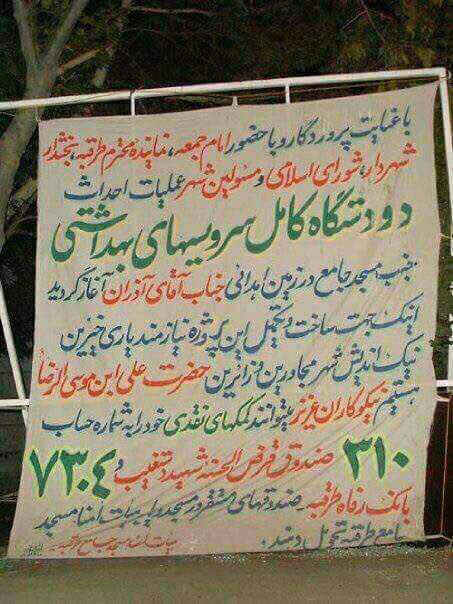 با عنایت پروردگار و با حضور امام جمعه، نماینده محترم طرقبه، بخشدار
شهردار، شورای اسلامی و مسئولین شهر عملیات احداث
دو دستگاه کامل سرویسهای بهداشتی
جنب مسجد جامع در زمین اهدائی جناب آقای آذران آغاز گردید
اینک جهت ساخت و تکمیل این پروژه نیازمند یاری خیرین
نیک اندیش شهر مجاورین و زائرین حضرت علی ابن موسی الرضا
هستیم نیکوکاران عزیز میتوانند کمکهای نقدی خود را به شماره حساب
۳۱۰ صندوق قرض الحسنه شهید دستغیب و ۷۳۰۴
بانک رفاه طرقبه - صندوقهای مستقر در مسجد و یا به هیات امنا مسجد
جامع طرقبه تحویل دهند.
هیات امنا مسجد جامع طرقبه